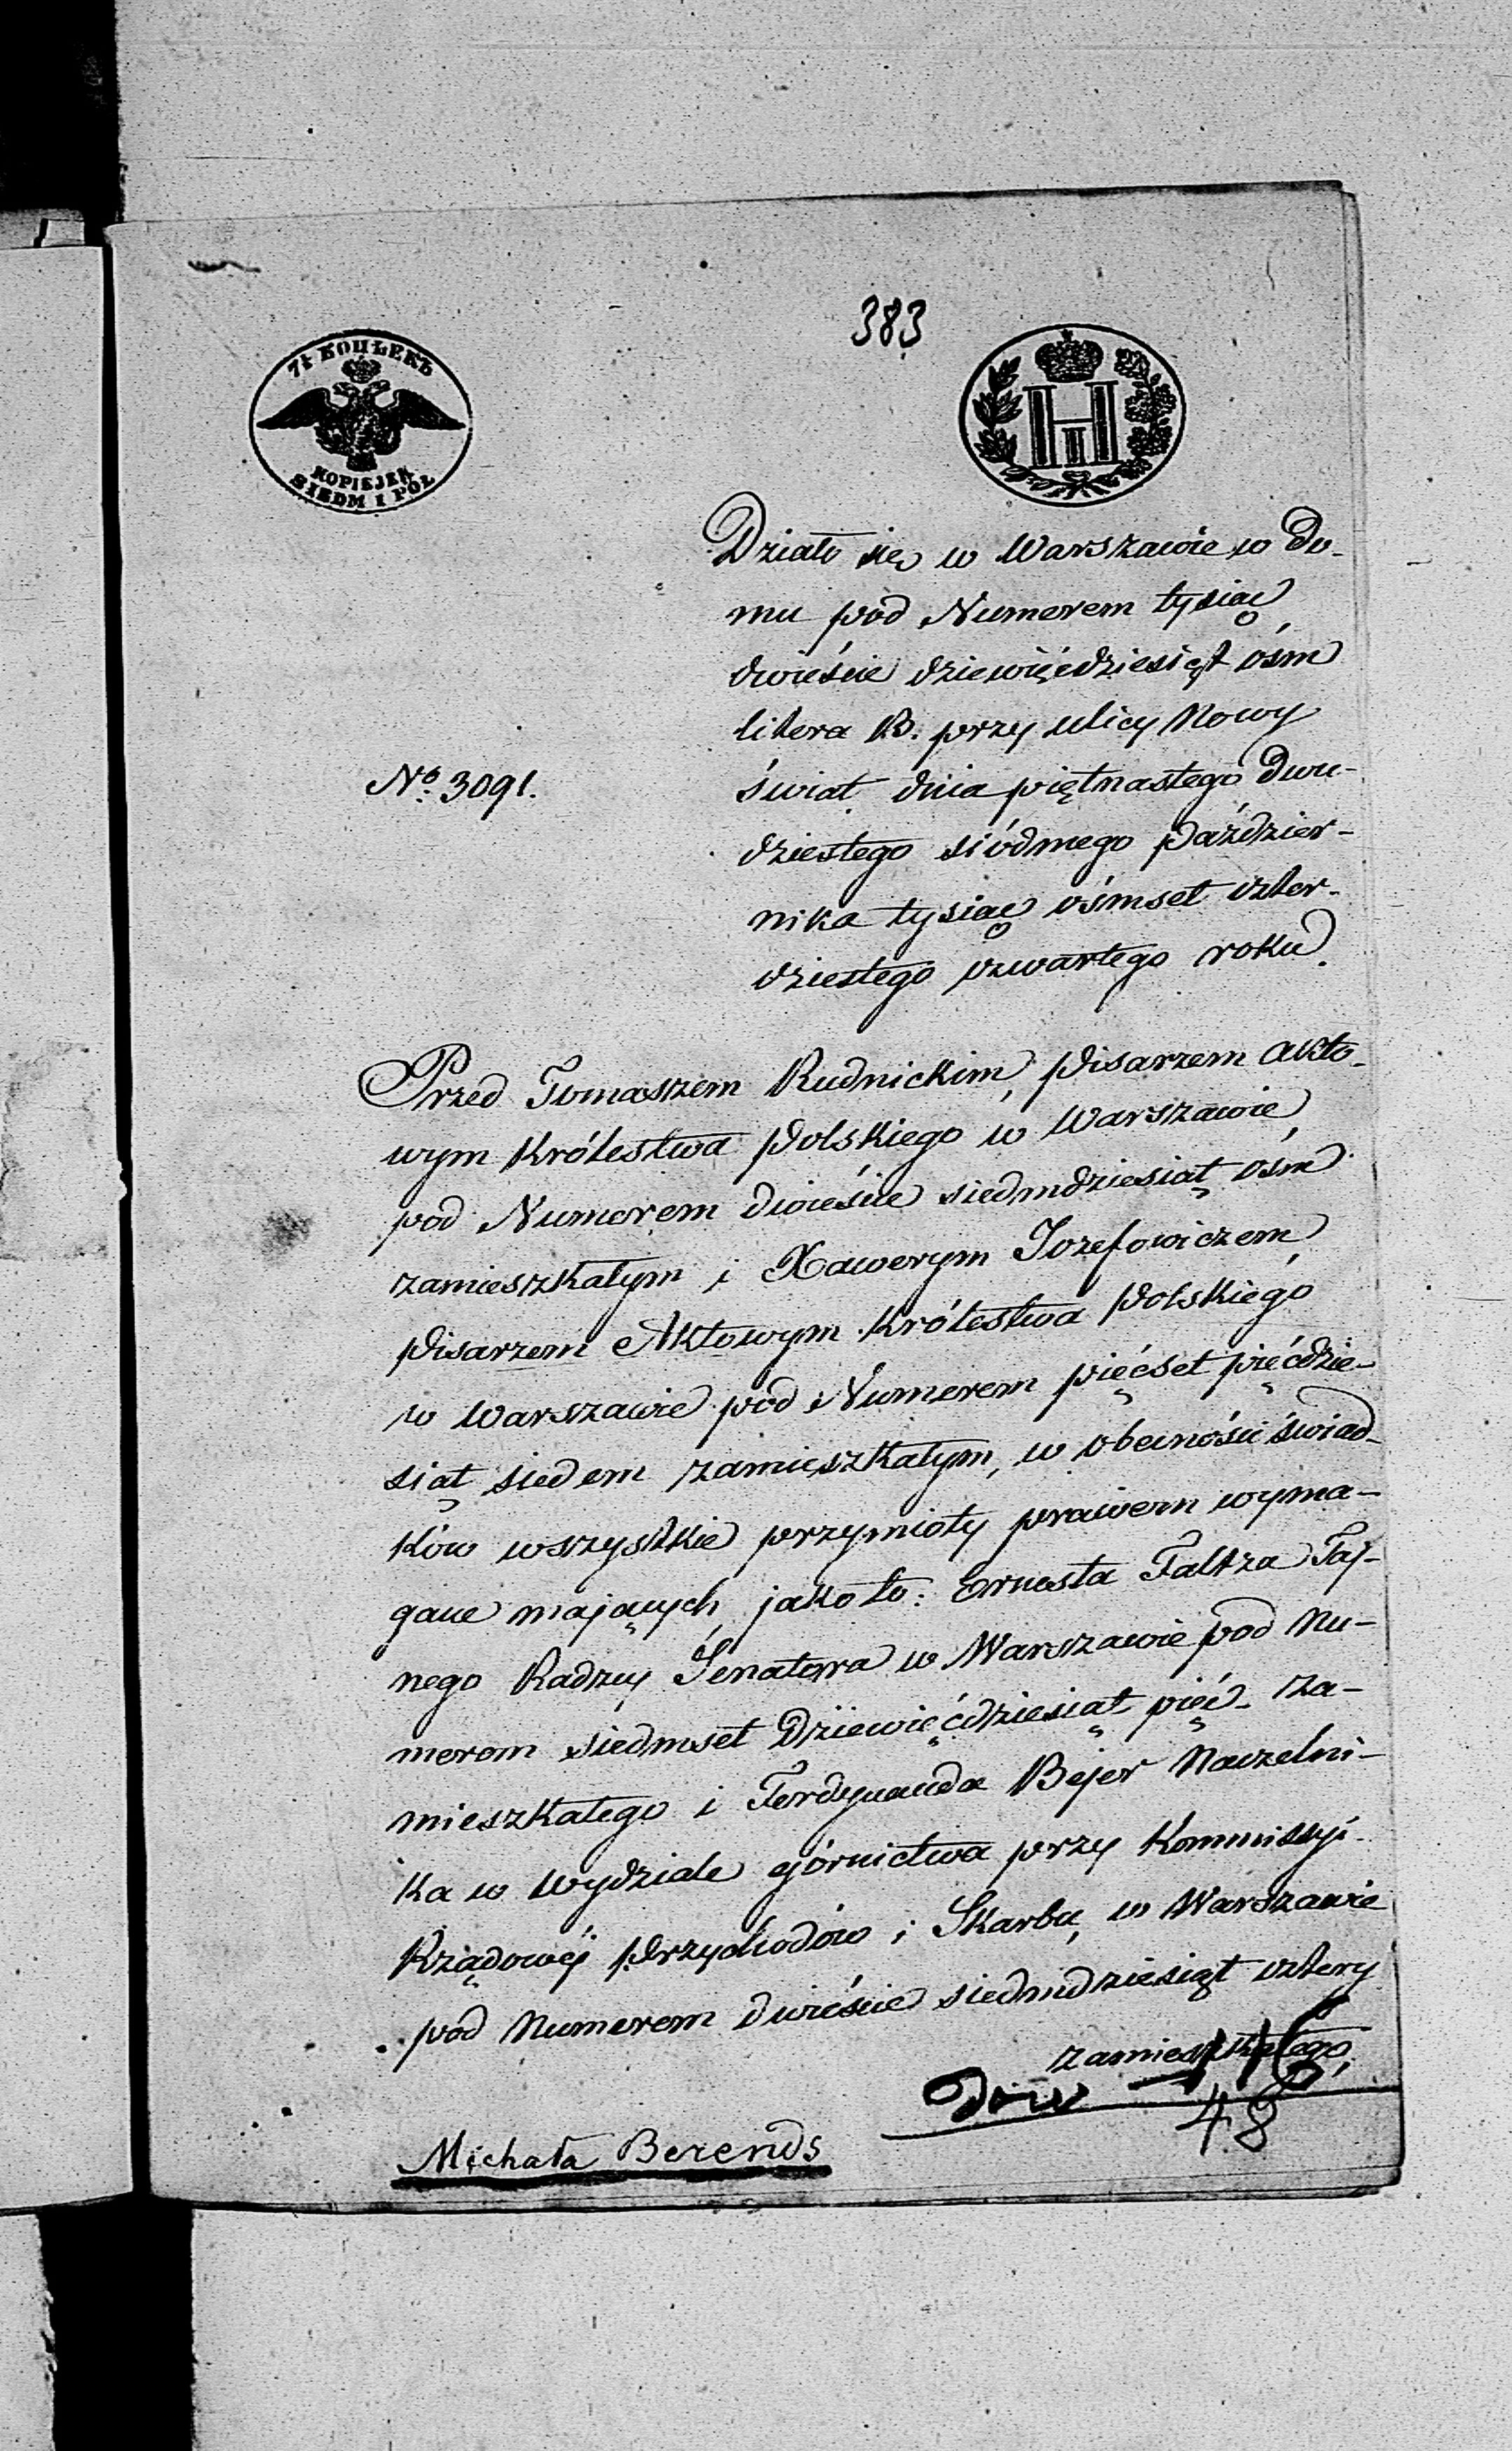 383
7½ КОПѢЕКЪ
KOPIEJEK
SIEDM I PÓŁ
Działo się w Warszawie w Do-
mu pod Numerem tysiąc
dwieście dziewięćdziesiąt ośm
litera B. przy ulicy Nowy
świat dnia piętnastego dwu-
dziestego siódmego Paździer-
nika tysiąc ośmset czter-
dziestego czwartego roku.
No. 3091.
Przed Tomaszem Rudnickim, Pisarzem akto-
wym Królestwa Polskiego w Warszawie,
pod Numerem dwieście siedmdziesiąt ośm
zamieszkałym i Xawerym Jozefowiczem
Pisarzem Aktowym Królestwa Polskiego
w Warszawie pod Numerem pięćset pięćdzie-
siąt siedem zamieszkałym, w obecności świad-
ków wszystkie przymioty prawem wyma-
gane mających jako to: Ernesta Faltza Taj-
nego Radzcy Senatora w Warszawie pod Nu-
merem siedmset dziewięćdziesiąt pięć za-
mieszkałego i Ferdynanda Bejer Naczelni-
ka w wydziale górnictwa przy Kommissyi
Rządowéj Przychodów i Skarbu, w Warszawie
pod Numerem dwieście siedmdziesiąt cztery
zamieszkałego,
Dow 116
48
Michała Berends